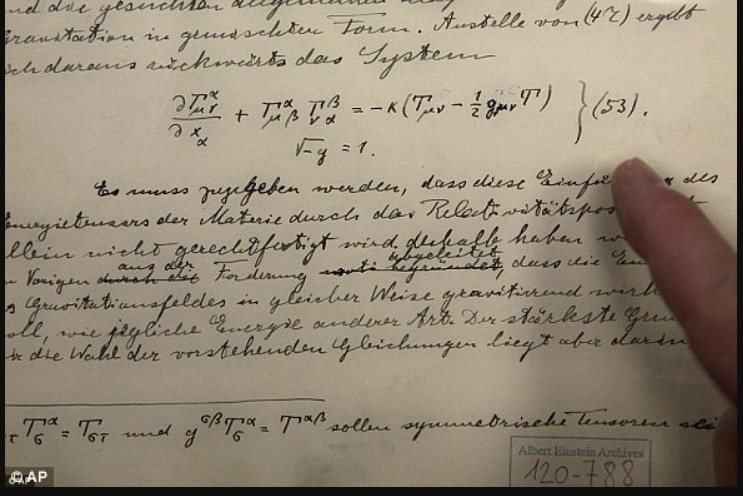 nd die gesuchten allgemeinen
Gravitation in gemischter Form. Anstelle von (47) ergibt
ich daraus rückwärts das System
∂Γ^α_μν/∂x_α + Γ^α_μβ Γ^β_να = −κ(T_μν − ½ g_μν T) } (53).
√−g = 1.
Es muss zugegeben werden, dass diese Einfü des
Energietensors der Materie durch das Relativitätspos
allein nicht gerechtfertigt wird; deshalb haben w
Vorigen durch die aus der Forderung abgeleitet, dass die En
s Gravitationsfeldes in gleicher Weise gravitierend wirk
oll, wie jegliche Energie anderer Art. Der stärkste Gru
ür die Wahl der vorstehenden Gleichungen liegt aber darin
στ T^α_σ = T_στ und g^σβ T^α_σ = T^αβ sollen symmetrische Tensoren sei
Albert Einstein Archives
120-788
© AP